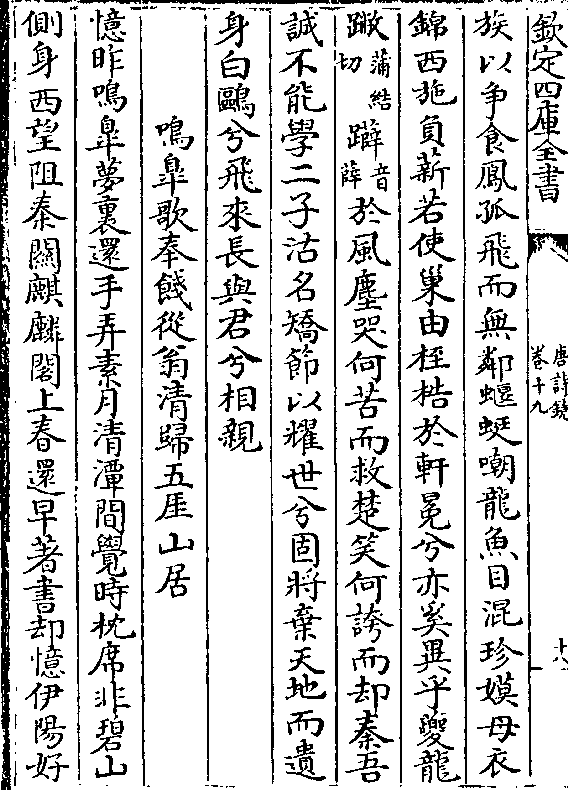 欽定四庫全書
唐詩鏡
卷十九
十八
族以爭食鳳孤飛而無鄰蝘蜓嘲龍魚目混珍嫫母衣
錦西施負薪若使巢由桎梏於軒冕兮亦奚異乎夔龍
蹩蒲結切躠音薛於風塵哭何苦而救楚笑何誇而却秦吾
誠不能學二子沽名矯節以耀世兮固將棄天地而遺
身白鷗兮飛來長與君兮相親
鳴臯歌奉餞從翁清歸五厓山居
憶昨鳴臯夢裏還手弄素月清潭間覺時枕席非碧山
側身西望阻秦關麒麟閣上春還早著書却憶伊陽好